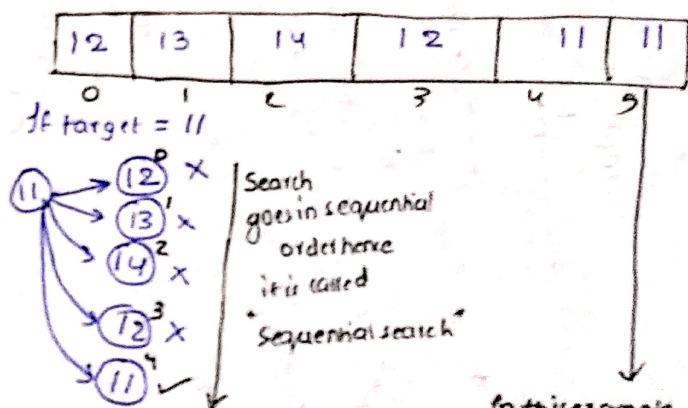 12 13 14 12 11 11
0 1 2 3 4 5
If target = 11
11
12 0 x
13 1 x
14 2 x
12 3 x
11 4 ✓
Search
goes in sequential
order hence
it is called
"Sequential search"
In this example